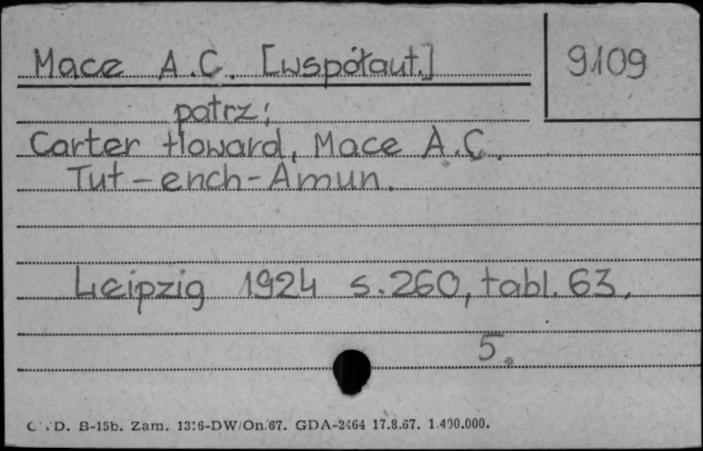 Mace A.C. [współaut.]
9109
patrz;
Carter Howard, Mace A.C.
Tut-ench-Amun.
Leipzig 1924 s.260, tabl. 63,
5.
D. B-15b. Zam. 1316-DW/On/67. GDA-2464 17.8.67. 1.400.000.